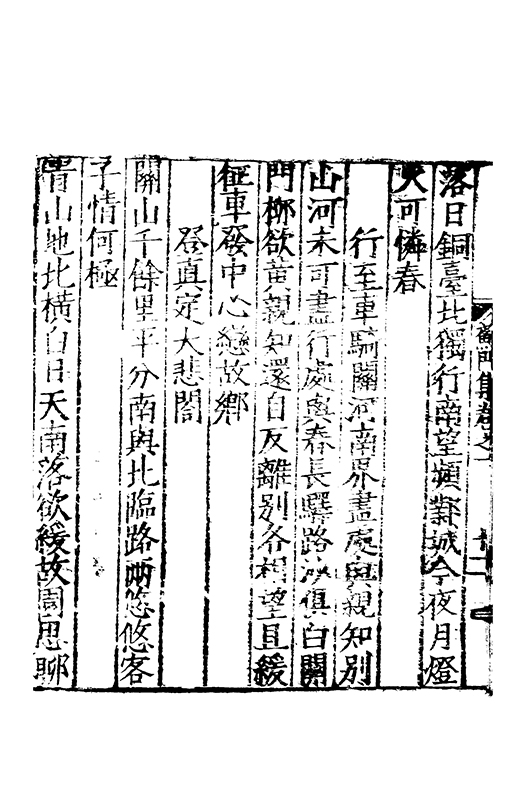 落日銅臺北獨行南望頻鄴城今夜月燈
火可憐春
行至車騎關河南界盡處與親知別
山河未可盡行處與春長驛路沙俱白關
門柳欲黃親知還自反離別各相望且緩
征車發中心戀故鄉
登真定大悲閣
關山千餘里平分南與北臨路兩悠悠客
子情何極
青山地北橫白日天南落欲緩故園思聊
集卷之一